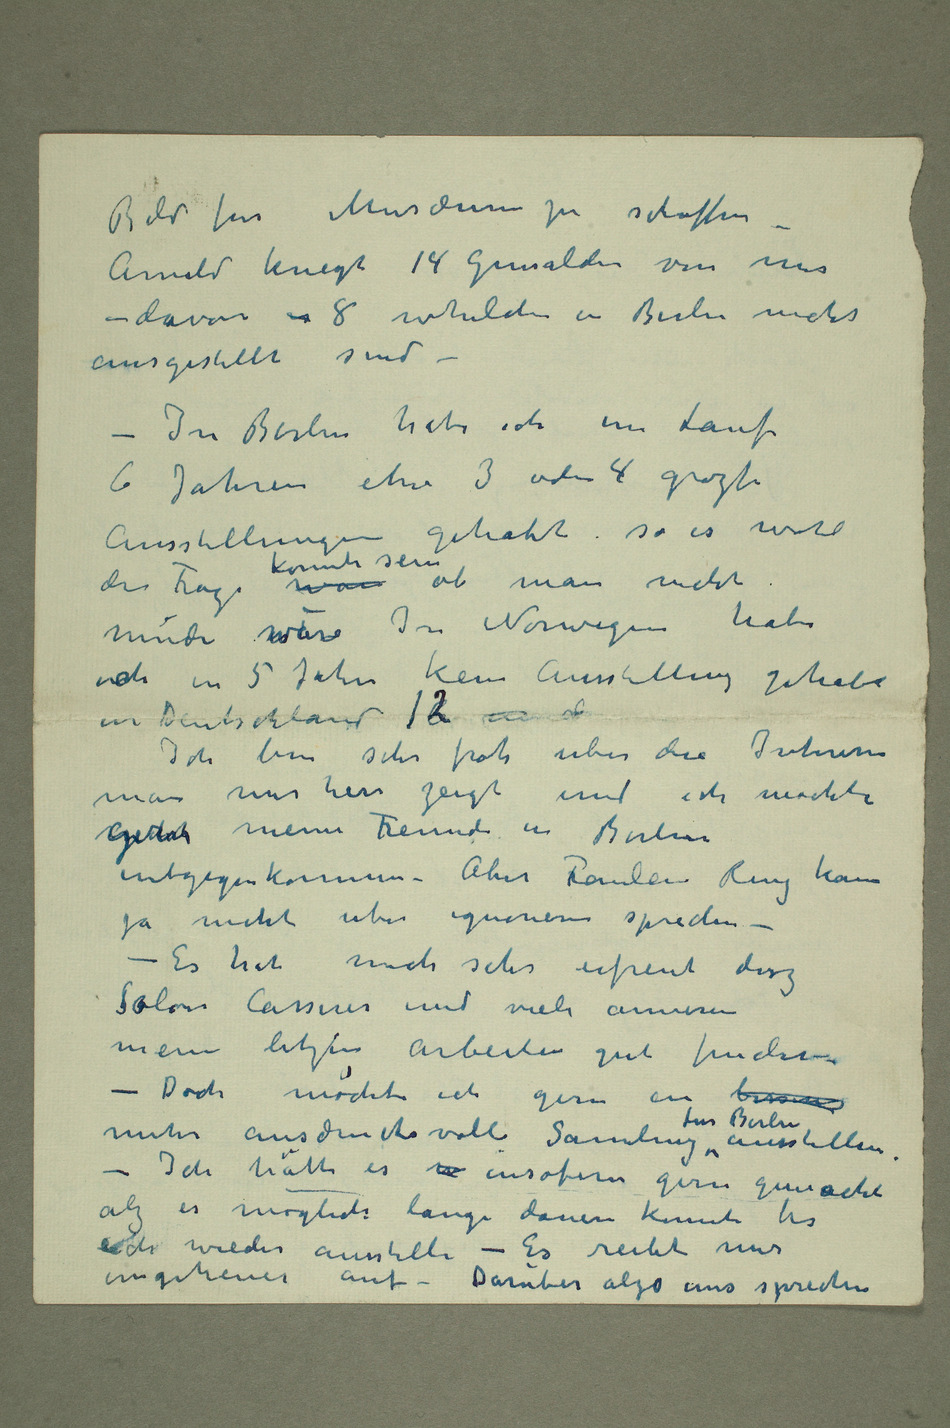 Bild für Museum zu schaffen –
Arnold kriegt 14 Gemälde von mir
– davon 8 welche in Berlin nicht
ausgestellt sind –
– In Berlin habe ich im Lauf
6 Jahren etwa 3 oder 4 grozse
Ausstellungen gehabt. so es wohl
die Frage konnte sein ob man nicht
müde wäre In Norwegen habe
ich in 5 Jahre kein Ausstellung gehabt
in Deutschland 12
Ich bin sehr froh uber die Interesse
man mir hier zeigt und ich mochte
meine Freunde in Berlin
entgegenkommen – Aber Fraulein Ring kan
ja nicht uber ignoriren sprechen –
– Es hat mich sehr erfreut dasz
Salon Cassirer und viele anderen
meine letzten Arbeiten gut finden –
– Doch möcht ich gern ein bissen
mehr ausdrucksvolle Samlung für Berlin ausstellen.
– Ich hätte es insofern gern gemacht
alz es moglichst lange dauern konnte bis
ich wieder ausstelle – Es reibt mir
ungeheuer auf – Darüber alzo uns sprechen